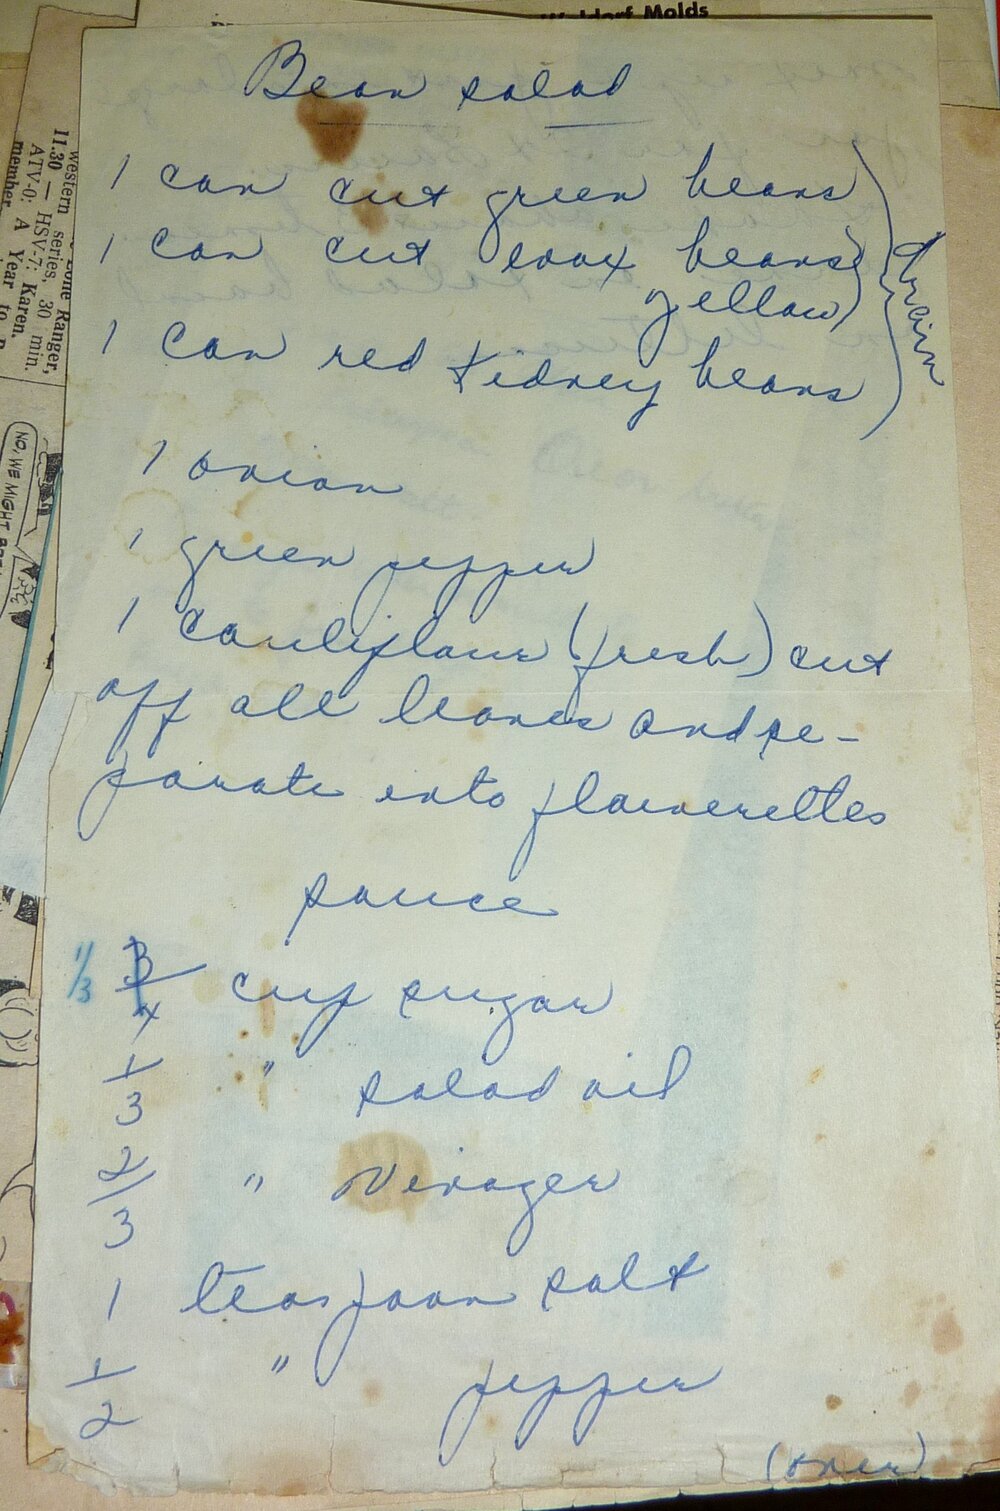 Waldorf Molds
Bean salad
1 can cut green beans
1 can cut wax beans
yellow
1 can red kidney beans
drain
1 onion
1 green pepper
1 cauliflour (fresh) cut
off all leaves and se-
parate into flowerettes
sauce
1/3 3/4 cup sugar
1/3 " salad oil
2/3 " vinager
1 teaspoon salt
1/2 " pepper
(over)
western series, 30 min.
11.30 — HSV-7: Karen.
ATV-0: A Year to
member
Lone Ranger,
NO, WE MIGHT